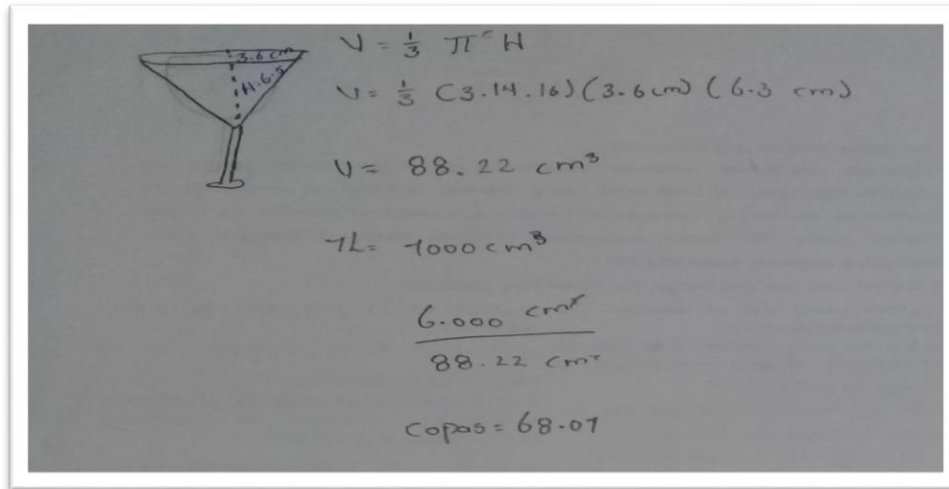 3.6 cm
H=6.5
V = 1/3 π r H
V = 1/3 (3.14.16) (3.6 cm) (6.3 cm)
V = 88.22 cm³
1L = 1000 cm³
6.000 cm³
88.22 cm³
copas = 68.01